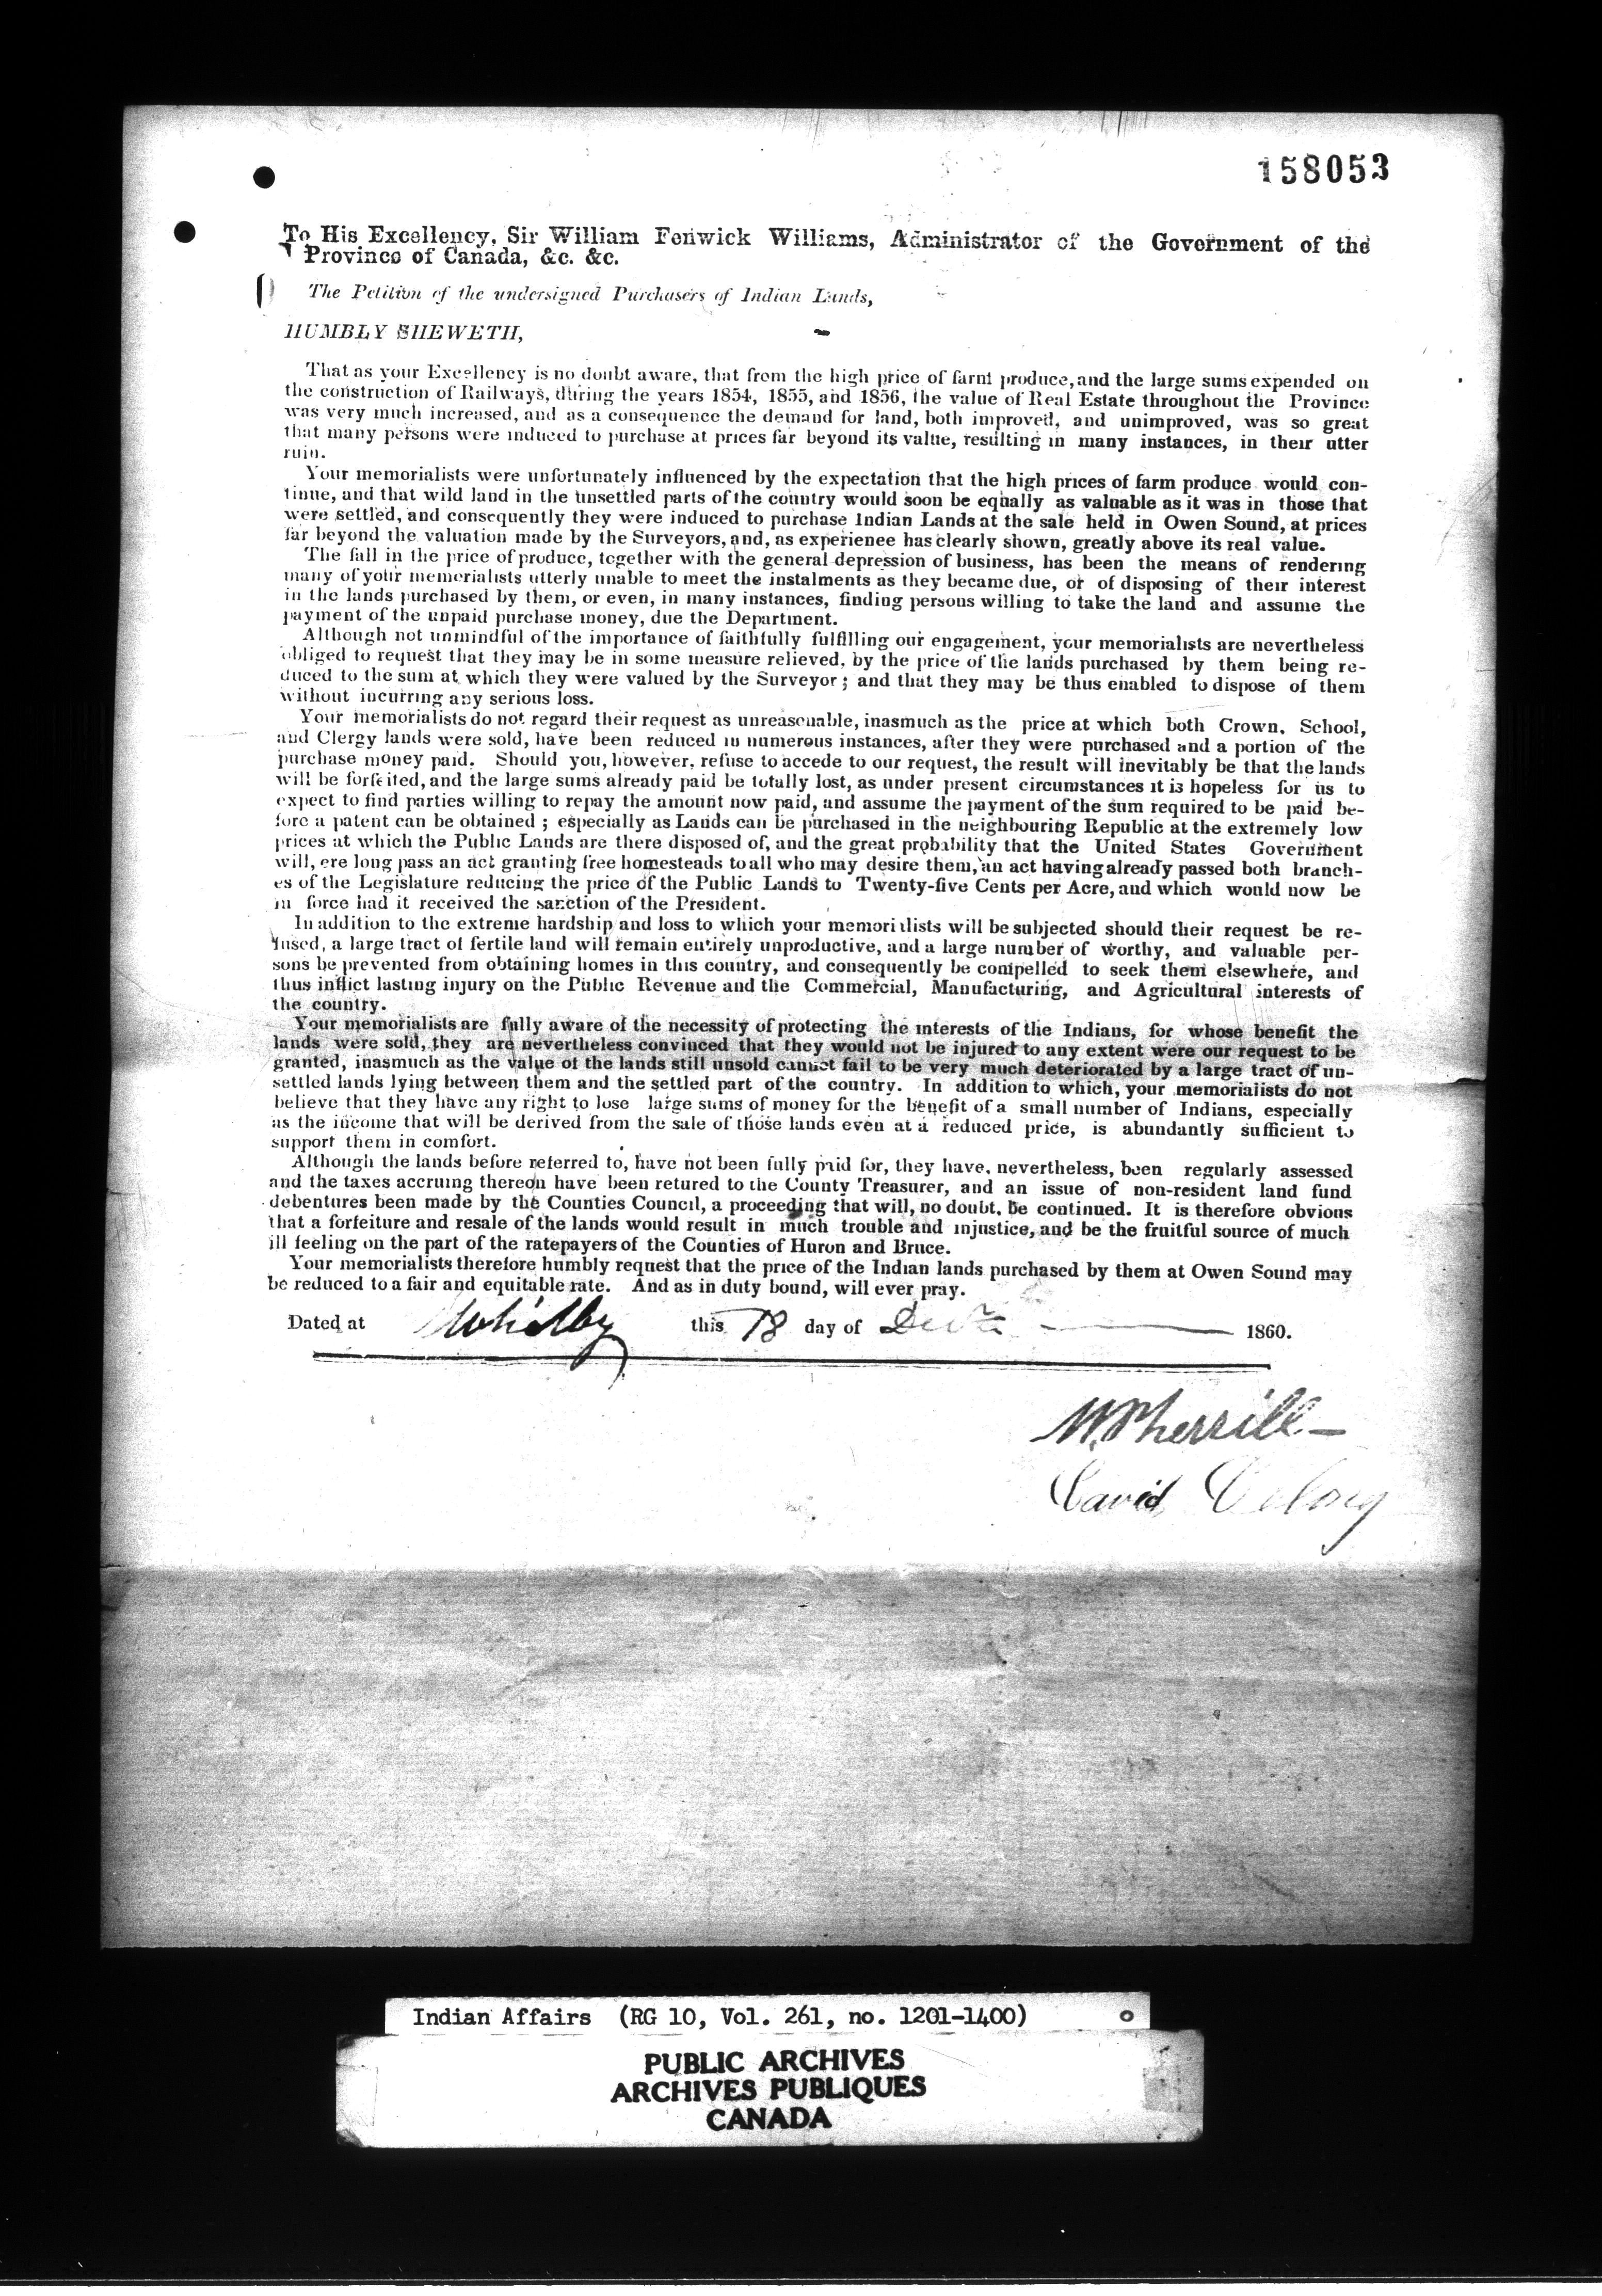 158053
To His Excellency, Sir William Fenwick Williams, Administrator of the Government of the
Province of Canada, &c. &c.
The Petition of the undersigned Purchasers of Indian Lands,
HUMBLY SHEWETH,
That as your Excellency is no doubt aware, that from the high price of farm produce, and the large sums expended on
the construction of Railways, during the years 1854, 1855, and 1856, the value of Real Estate throughout the Province
was very much increased, and as a consequence the demand for land, both improved, and unimproved, was so great
that many persons were induced to purchase at prices far beyond its value, resulting in many instances, in their utter
ruin.
Your memorialists were unfortunately influenced by the expectation that the high prices of farm produce would con-
tinue, and that wild land in the unsettled parts of the country would soon be equally as valuable as it was in those that
were settled, and consequently they were induced to purchase Indian Lands at the sale held in Owen Sound, at prices
far beyond the valuation made by the Surveyors, and, as experience has clearly shown, greatly above its real value.
The fall in the price of produce, together with the general depression of business, has been the means of rendering
many of your memorialists utterly unable to meet the instalments as they became due, or of disposing of their interest
in the lands purchased by them, or even, in many instances, finding persons willing to take the land and assume the
payment of the unpaid purchase money, due the Department.
Although not unmindful of the importance of faithfully fulfilling our engagement, your memorialists are nevertheless
obliged to request that they may be in some measure relieved, by the price of the lands purchased by them being re-
duced to the sum at which they were valued by the Surveyor; and that they may be thus enabled to dispose of them
without incurring any serious loss.
Your memorialists do not regard their request as unreasonable, inasmuch as the price at which both Crown, School,
and Clergy lands were sold, have been reduced in numerous instances, after they were purchased and a portion of the
purchase money paid. Should you, however, refuse to accede to our request, the result will inevitably be that the lands
will be forfeited, and the large sums already paid be totally lost, as under present circumstances it is hopeless for us to
expect to find parties willing to repay the amount now paid, and assume the payment of the sum required to be paid be-
fore a patent can be obtained; especially as Lands can be purchased in the neighbouring Republic at the extremely low
prices at which the Public Lands are there disposed of, and the great probability that the United States Government
will, ere long pass an act granting free homesteads to all who may desire them, an act having already passed both branch-
es of the Legislature reducing the price of the Public Lands to Twenty-five Cents per Acre, and which would now be
in force had it received the sanction of the President.
In addition to the extreme hardship and loss to which your memorialists will be subjected should their request be re-
fused, a large tract of fertile land will remain entirely unproductive, and a large number of worthy, and valuable per-
sons be prevented from obtaining homes in this country, and consequently be compelled to seek them elsewhere, and
thus inflict lasting injury on the Public Revenue and the Commercial, Manufacturing, and Agricultural interests of
the country.
Your memorialists are fully aware of the necessity of protecting the interests of the Indians, for whose benefit the
lands were sold, they are nevertheless convinced that they would not be injured to any extent were our request to be
granted, inasmuch as the value of the lands still unsold cannot fail to be very much deteriorated by a large tract of un-
settled lands lying between them and the settled part of the country. In addition to which, your memorialists do not
believe that they have any right to lose large sums of money for the benefit of a small number of Indians, especially
as the income that will be derived from the sale of those lands even at a reduced price, is abundantly sufficient to
support them in comfort.
Although the lands before referred to, have not been fully paid for, they have, nevertheless, been regularly assessed
and the taxes accruing thereon have been retured to the County Treasurer, and an issue of non-resident land fund
debentures been made by the Counties Council, a proceeding that will, no doubt, be continued. It is therefore obvious
that a forfeiture and resale of the lands would result in much trouble and injustice, and be the fruitful source of much
ill feeling on the part of the ratepayers of the Counties of Huron and Bruce.
Your memorialists therefore humbly request that the price of the Indian lands purchased by them at Owen Sound may
be reduced to a fair and equitable rate. And as in duty bound, will ever pray.
Dated at Whitby this 18 day of 1860.
David Delong
Indian Affairs (RG 10, Vol. 261, no. 1201-1400)
PUBLIC ARCHIVES
ARCHIVES PUBLIQUES
CANADA